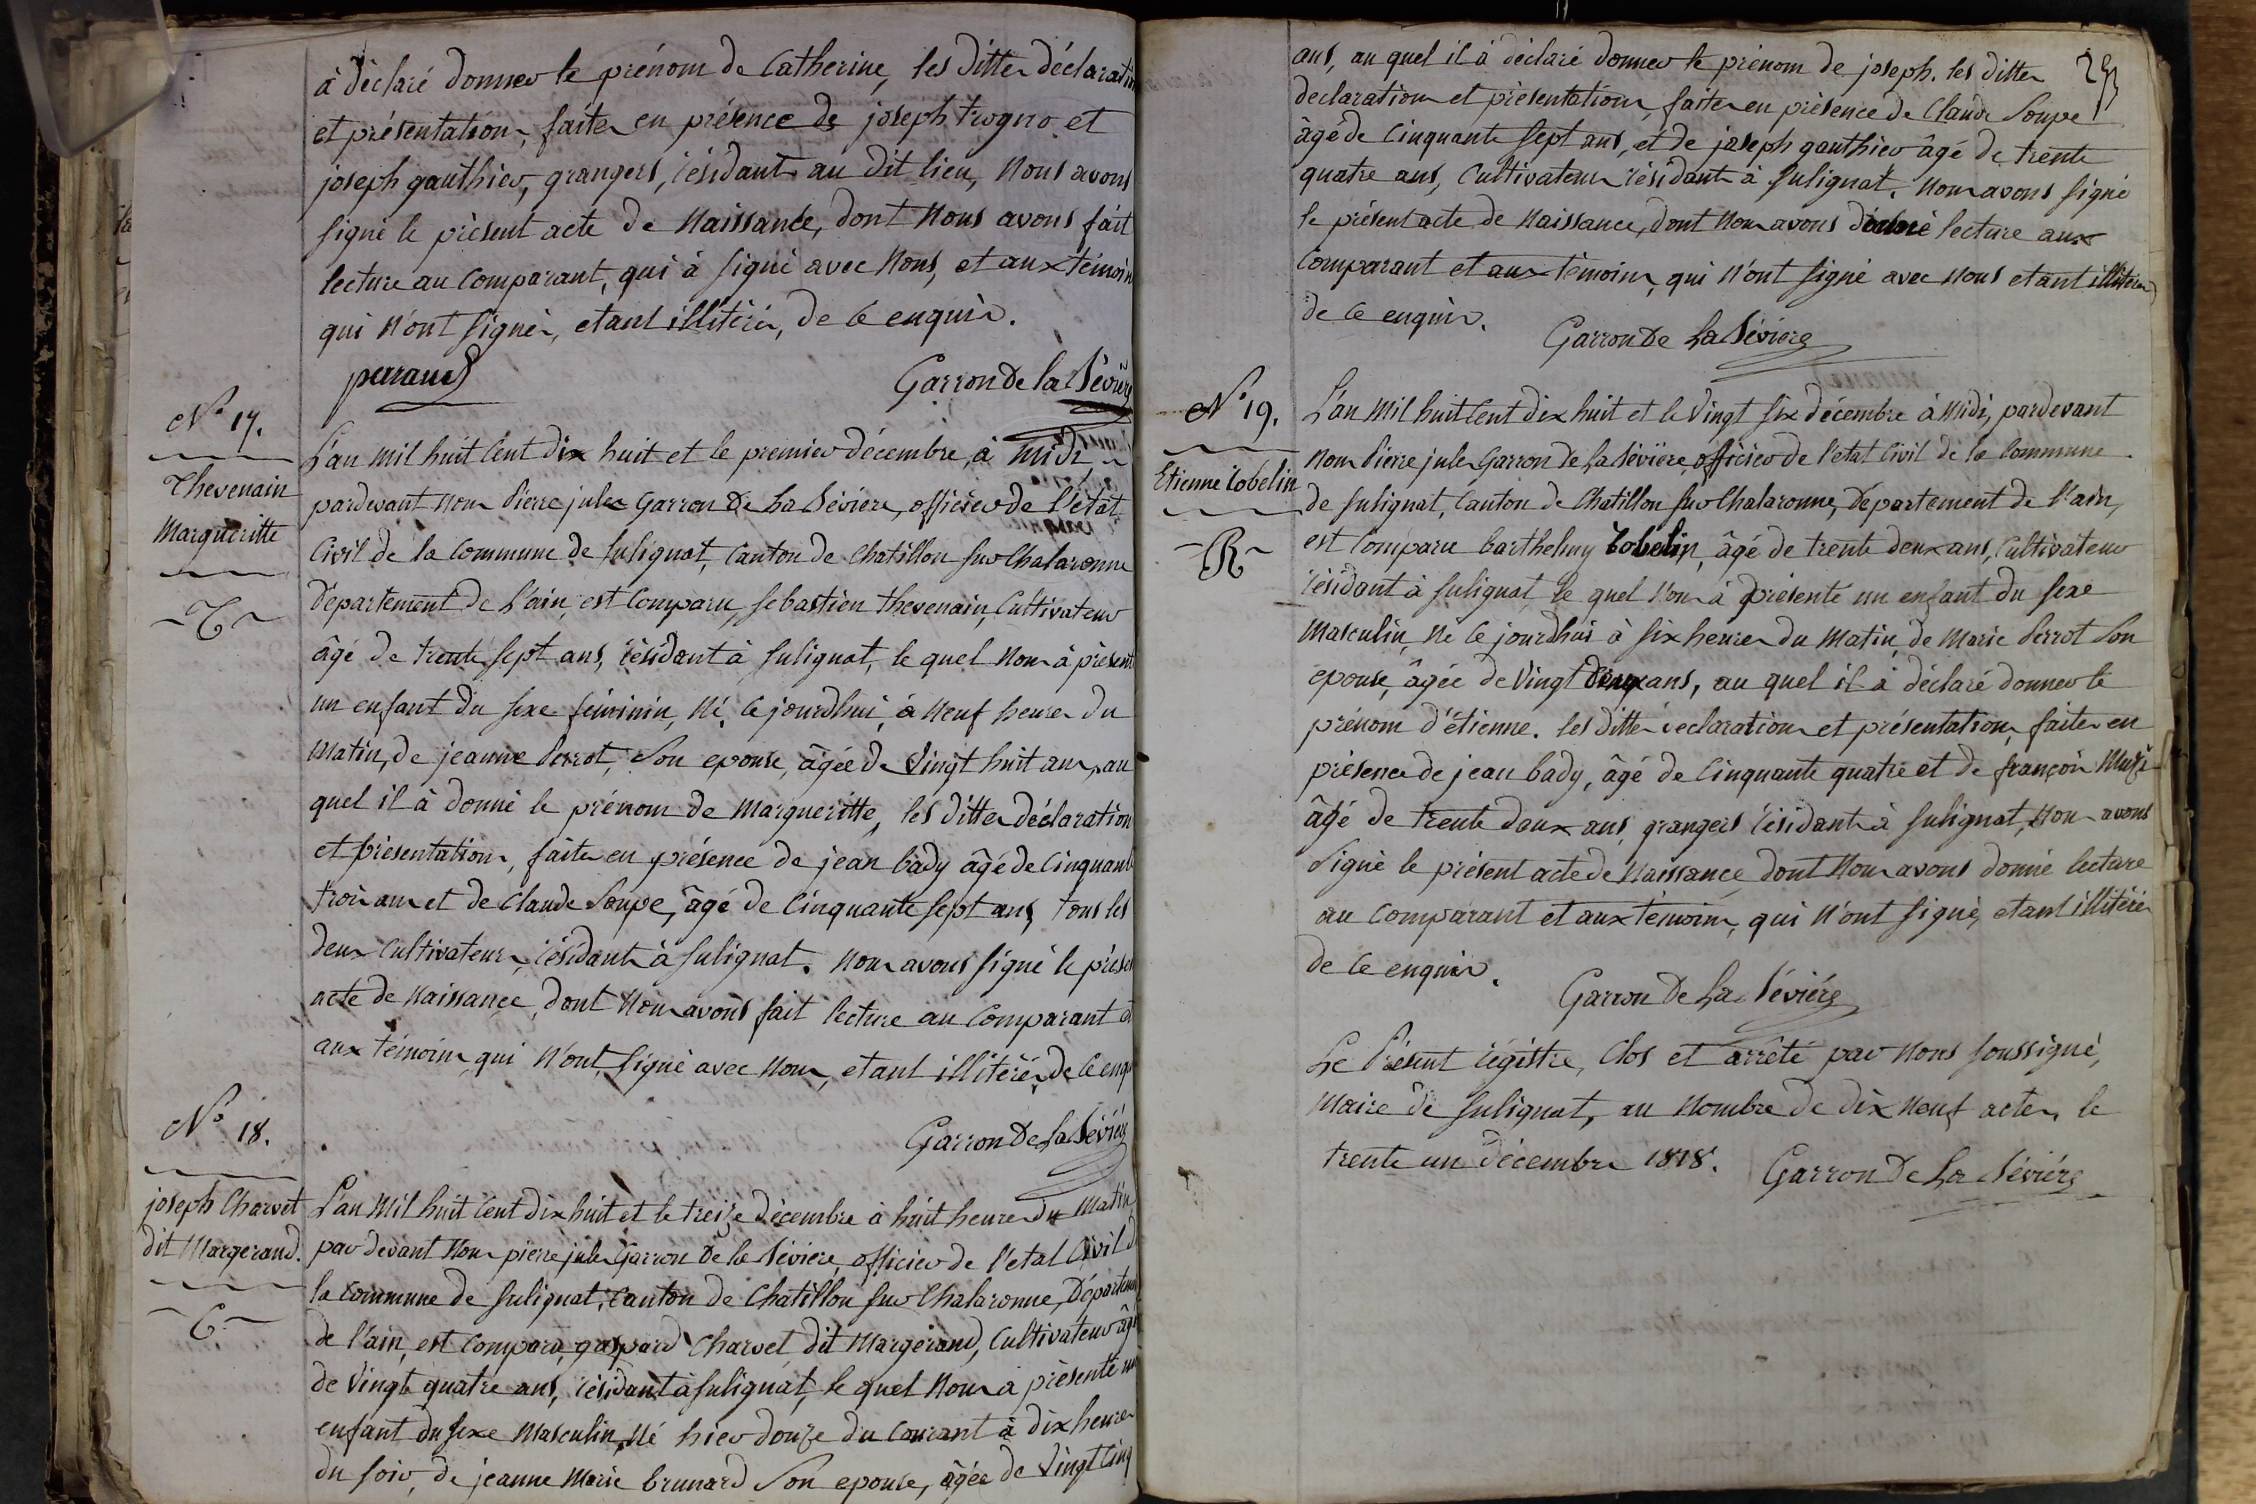 à déclaré donner le prénom de Catherine, les dittes déclaration
et présentation, faites en présence de joseph trogno et
joseph gauthier, grangers, résidants au dit lieu, Nous avons
signé le présent acte de Naissance, dont Nous avons fait
lecture au Comparant, qui à signé avec Nous, et aux témoin
qui N'ont signés, etant illitérés, de ce enquis.
perraud
Garron De la Sévière
N° 17.
Thevenain
Margueritte
L'an Mil huit Cent Dix huit et le premier décembre, à Midi
pardevant Nous Pierre jules Garron De La Sévière, officier de l'état
Civil de la Commune de Sulignat, Canton de Chatillon sur Chalaronne
Département de l'ain, est Comparu, sebastien thevenain, Cultivateur
âgé de trente sept ans, résidant à Sulignat, le quel Nous à présent
un enfant du sexe féminin, Né, ce jourdhui, à Neuf heures du
Matin, de jeanne Perrot, Son epouse, âgée de Vingt huit ans, au
quel il à donné le prénom de Margueritte, les dittes déclaration
et présentation, faites en présence de jean bady âgé de Cinquante
trois ans et de Claude Soupe, âgé de Cinquante sept ans, tous les
deux Cultivateurs, résidants à Sulignat. Nous avons signé le prése
acte de Naissance, dont Nous avons fait lecture au Comparant et
aux témoins, qui N'ont signé avec Nous, etant illitérés, de Ce enqu
Garron De La Sévière
N° 18.
joseph Charvet
dit Margerand.
C
L'an Mil huit Cent dix huit et le treize Décembre à huit heures du Matin
par devant Nous pierre jules Garron de la Sévière, officier de l'etat Civil d
la Commune de Sulignat, Canton de Chatillon sur Chalaronne, Départem
de l'ain, est Comparu, gaspard Charvet dit Margérand, Cultivateur âgé
de Vingt quatre ans, résidant à Sulignat, le quel Nous a présenté un
enfant du sexe Masculin, Né hier douze du Courant à dix heures
du soir, de jeanne Marie brunard Son epouse, âgée de Vingt Cinq
ans, au quel il à déclaré donner le prénom de joseph. les dittes
declaration et présentation, faites en présence de Claude Soupe
âgé de Cinquante Sept ans, et de joseph gauthier âgé de trente
quatre ans, Cultivateurs résidants à Sulignat. Nous avons signé
le présent acte de Naissance, dont Nous avons donné lecture aux
Comparant et aux témoins, qui N'ont signé avec Nous etant illitérés
de Ce enquis.
Garron De La Sévière
N° 19.
Etienne Cobelin
R
L'an Mil huit Cent dix huit et le Vingt six décembre à Midi, pardevant
Nous Pierre jules Garron De La Sévière, officier de l'etat Civil de la Commune
de Sulignat, Canton de Chatillon sur Chalaronne, Département de l'ain,
est Comparu barthelmy Cobelin, âgé de trente deux ans, Cultivateur
résidant à Sulignat, le quel Nous à présenté un enfant du sexe
Masculin, Né le jourdhui à six heures du Matin, de Marie Perrot Son
epouse, âgée de Vingt deux ans, au quel il à déclaré donner le
prénom d'étienne. les dittes declaration et présentation, faites en
présence de jean bady, âgé de Cinquante quatre et de françois
âgé de trente deux ans, grangers résidants à Sulignat, Nous avons
signé le présent acte de Naissance, dont Nous avons donné lecture
au Comparant et aux témoins, qui N'ont signé, etant illitérés
de Ce enquis.
Garron De La Sévière
Le Présent régistre, Clos et arrêté par Nous soussigné,
Maire de Sulignat, au Nombre de dix Neuf actes, le
trente un décembre 1818.
Garron De La Sévière